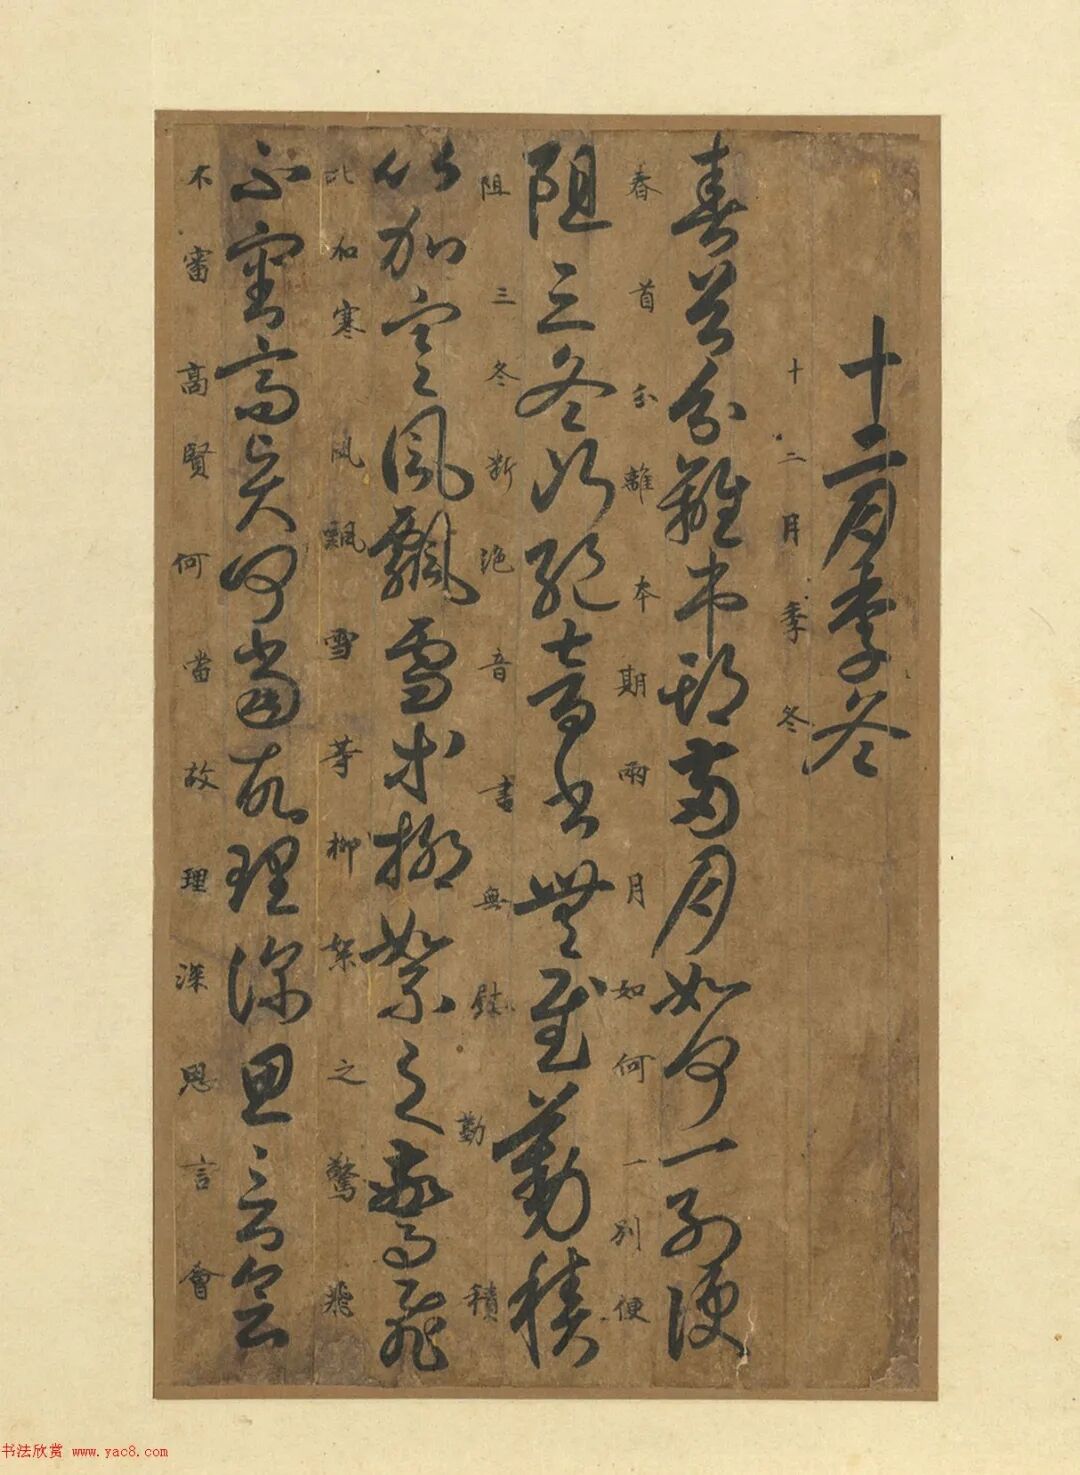 十二月季冬
十二月季冬
春首分離本期兩月如何一別便
春首分離本期兩月如何一別便
阻三冬斷絶音書無慰勤積
阻三冬斷絶音書無慰勤積
比加寒風飄雪等柳絮之驚飛
比加寒風飄雪等柳絮之驚飛
不審高賢何當故理深思言會
不審高賢何當故理深思言會
书法欣赏 www.yac8.com